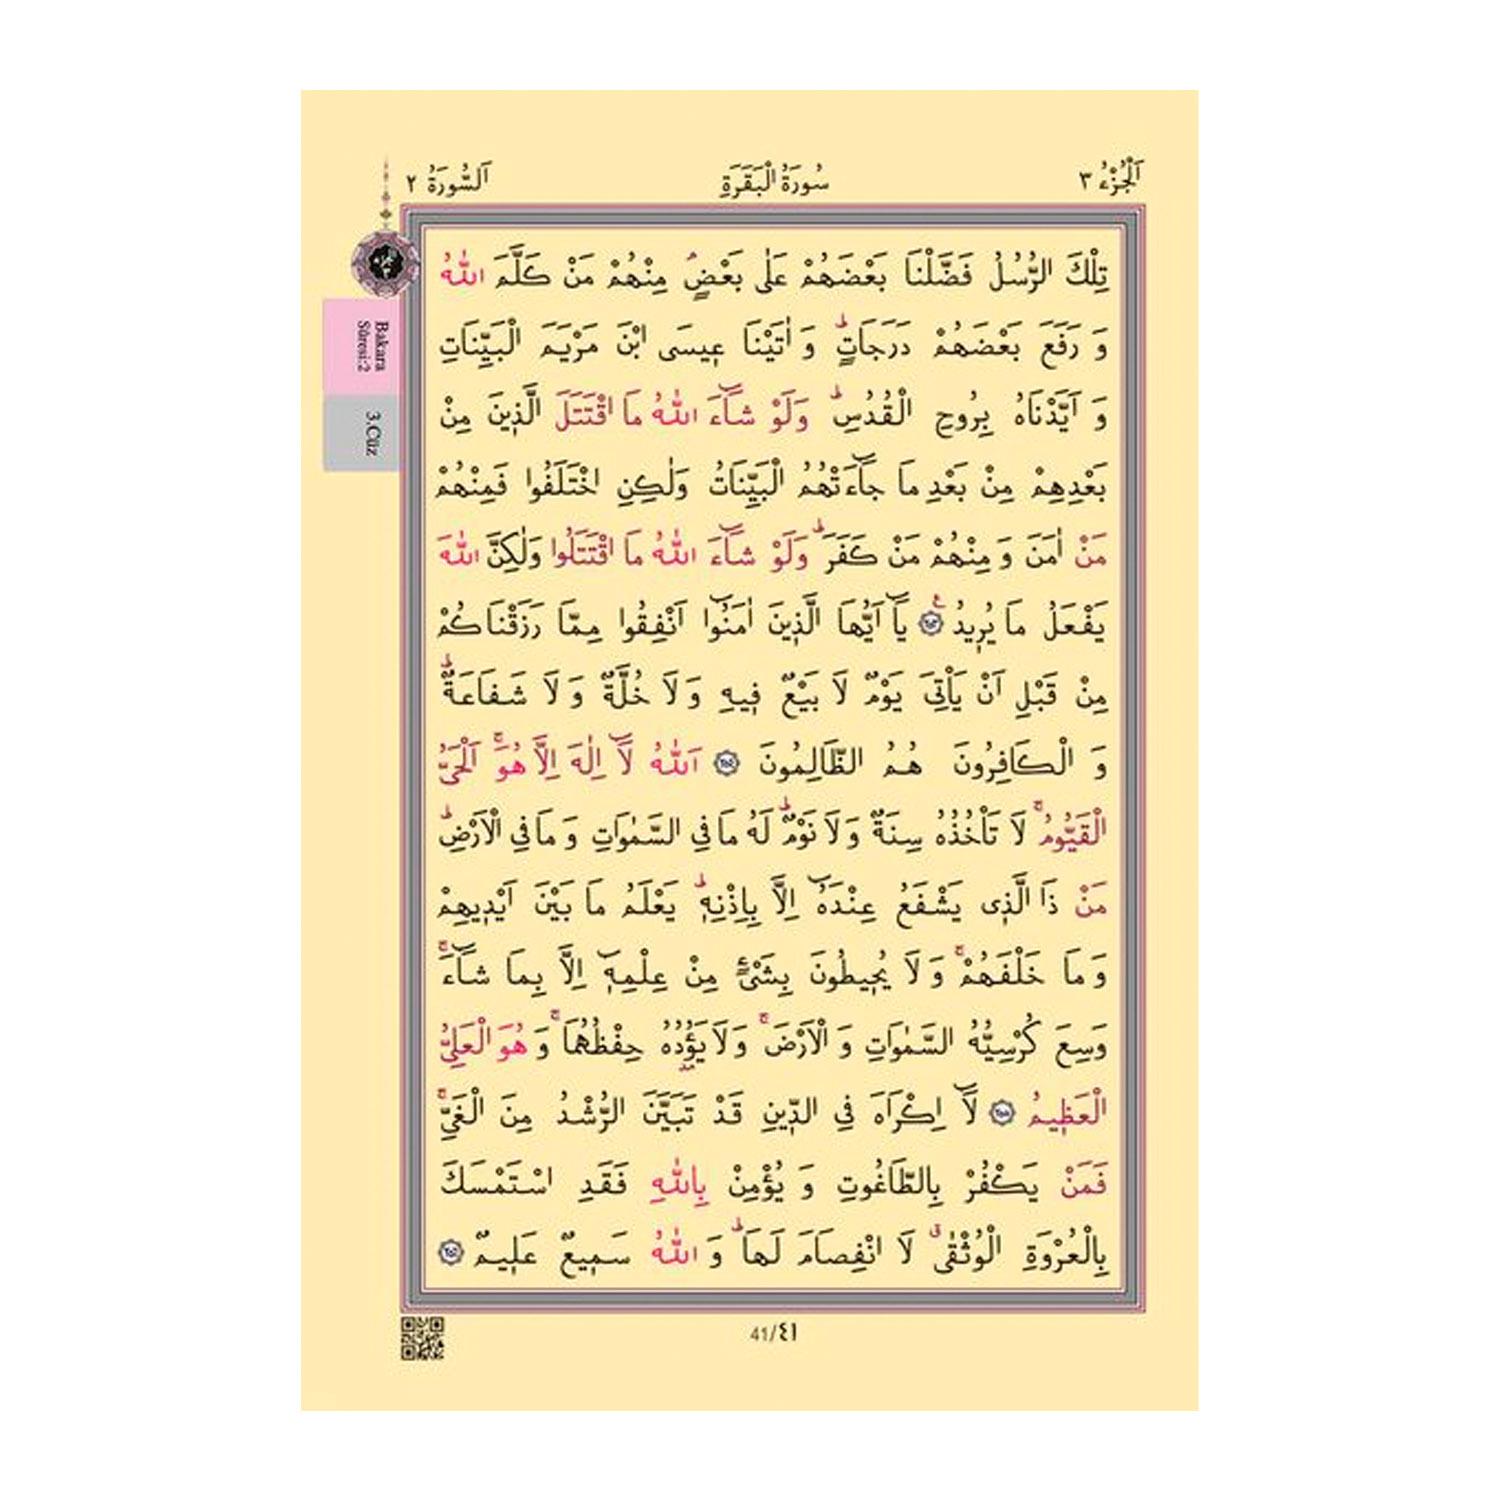 اَلْجُزْءُ ٣
سُورَةُ الْبَقَرَةِ
اَلسُّورَةُ ٢
Bakara
Sûresi:2
3.Cüz
تِلْكَ الرُّسُلُ فَضَّلْنَا بَعْضَهُمْ عَلٰى بَعْضٍۢ مِنْهُمْ مَنْ كَلَّمَ اللّٰهُ
وَ رَفَعَ بَعْضَهُمْ دَرَجَاتٍۜ وَ اٰتَيْنَا ع۪يسَى ابْنَ مَرْيَمَ الْبَيِّنَاتِ
وَ اَيَّدْنَاهُ بِرُوحِ الْقُدُسِۜ وَلَوْ شَٓاءَ اللّٰهُ مَا اقْتَتَلَ الَّذ۪ينَ مِنْ
بَعْدِهِمْ مِنْ بَعْدِ مَا جَٓاءَتْهُمُ الْبَيِّنَاتُ وَلٰكِنِ اخْتَلَفُوا فَمِنْهُمْ
مَنْ اٰمَنَ وَ مِنْهُمْ مَنْ كَفَرَۜ وَلَوْ شَٓاءَ اللّٰهُ مَا اقْتَتَلُوا وَلٰكِنَّ اللّٰهَ
يَفْعَلُ مَا يُر۪يدُ۟ ﴿٢٥٣﴾ يَٓا اَيُّهَا الَّذ۪ينَ اٰمَنُٓوا اَنْفِقُوا مِمَّا رَزَقْنَاكُمْ
مِنْ قَبْلِ اَنْ يَأْتِيَ يَوْمٌ لَا بَيْعٌ ف۪يهِ وَ لَا خُلَّةٌ وَ لَا شَفَاعَةٌۜ
وَ الْكَافِرُونَ هُمُ الظَّالِمُونَ ﴿٢٥٤﴾ اَللّٰهُ لَٓا اِلٰهَ اِلَّا هُوَۚ اَلْحَيُّ
الْقَيُّومُۚ لَا تَأْخُذُهُ سِنَةٌ وَ لَا نَوْمٌۜ لَهُ مَا فِي السَّمٰوَاتِ وَ مَا فِي الْاَرْضِۜ
مَنْ ذَا الَّذ۪ي يَشْفَعُ عِنْدَهُٓ اِلَّا بِاِذْنِه۪ۜ يَعْلَمُ مَا بَيْنَ اَيْد۪يهِمْ
وَ مَا خَلْفَهُمْۚ وَ لَا يُح۪يطُونَ بِشَيْءٍ مِنْ عِلْمِه۪ٓ اِلَّا بِمَا شَٓاءَۚ
وَسِعَ كُرْسِيُّهُ السَّمٰوَاتِ وَ الْاَرْضَۚ وَ لَا يَؤُ۫دُهُ حِفْظُهُمَاۚ وَ هُوَ الْعَلِيُّ
الْعَظ۪يمُ ﴿٢٥٥﴾ لَٓا اِكْرَاهَ فِي الدّ۪ينِ قَدْ تَبَيَّنَ الرُّشْدُ مِنَ الْغَيِّۚ
فَمَنْ يَكْفُرْ بِالطَّاغُوتِ وَ يُؤْمِنْ بِاللّٰهِ فَقَدِ اسْتَمْسَكَ
بِالْعُرْوَةِ الْوُثْقٰىۗ لَا انْفِصَامَ لَهَاۜ وَ اللّٰهُ سَم۪يعٌ عَل۪يمٌ ﴿٢٥٦﴾
41/٤١